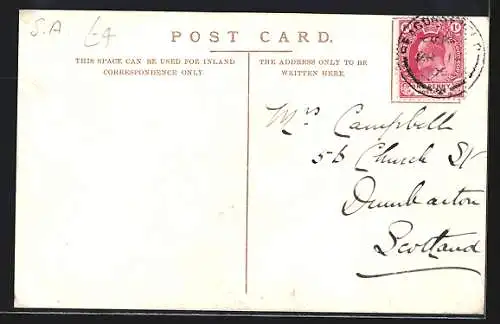 S.A £4
POST CARD.
THIS SPACE CAN BE USED FOR INLAND
CORRESPONDENCE ONLY.
THE ADDRESS ONLY TO BE
WRITTEN HERE.
Mrs Campbell
56 Church St
Dumbarton
Scotland